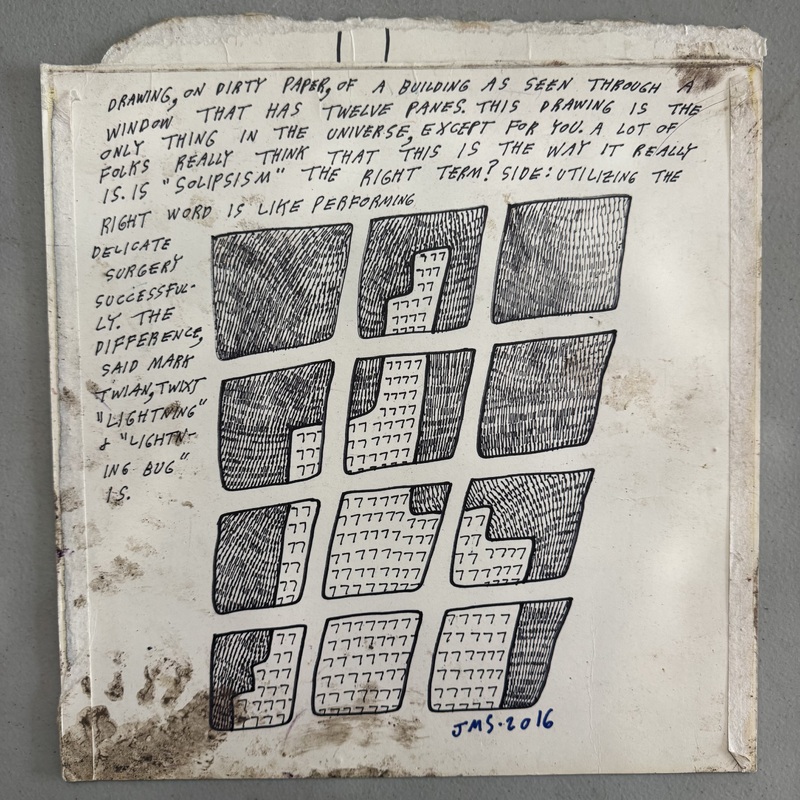 DRAWING, ON DIRTY PAPER, OF A BUILDING AS SEEN THROUGH A
WINDOW THAT HAS TWELVE PANES. THIS DRAWING IS THE
ONLY THING IN THE UNIVERSE, EXCEPT FOR YOU. A LOT OF
FOLKS REALLY THINK THAT THIS IS THE WAY IT REALLY
IS. IS "SOLIPSISM" THE RIGHT TERM? SIDE: UTILIZING THE
RIGHT WORD IS LIKE PERFORMING
DELICATE
SURGERY
SUCCESSFUL-
LY. THE
DIFFERENCE,
SAID MARK
TWIAN, TWIXT
"LIGHTNING"
& "LIGHTN-
ING BUG"
IS.
JMS·2016